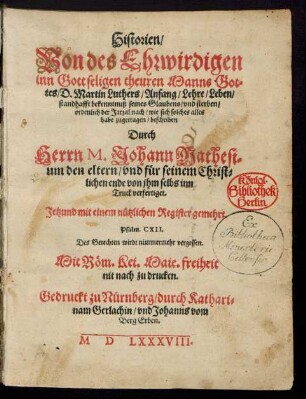 Historien/
Von des Ehrwirdigen
inn Gott seligen theuren Manns Got-
tes/ D. Martin Luthers/ Anfang/ Lehre/ Leben/
standhafft bekenntnuß seines Glaubens/ vnd sterben/
ordenlich der Jarzal nach/ wie sich solches alles
habe zugetragen/ beschriben
Durch
Herrn M. Johann Mathesi-
um den eltern/ vnd für seinem Christ-
lichen ende von jhm selbs inn
Truck verfertiget.
Jetzund mit einem nützlichen Register gemehrt.
Psalm. CXII.
Des Gerechten wirdt nimmermehr vergessen.
Mit Röm. Kei. Maie. freiheit
nit nach zu drucken.
Gedruckt zu Nürnberg/ durch Kathari-
nam Gerlachin/ vnd Johanns vom
Berg Erben.
M D LXXXVIII.
Königl.
Bibliothek
Berlin
Ex
Bibliotheca